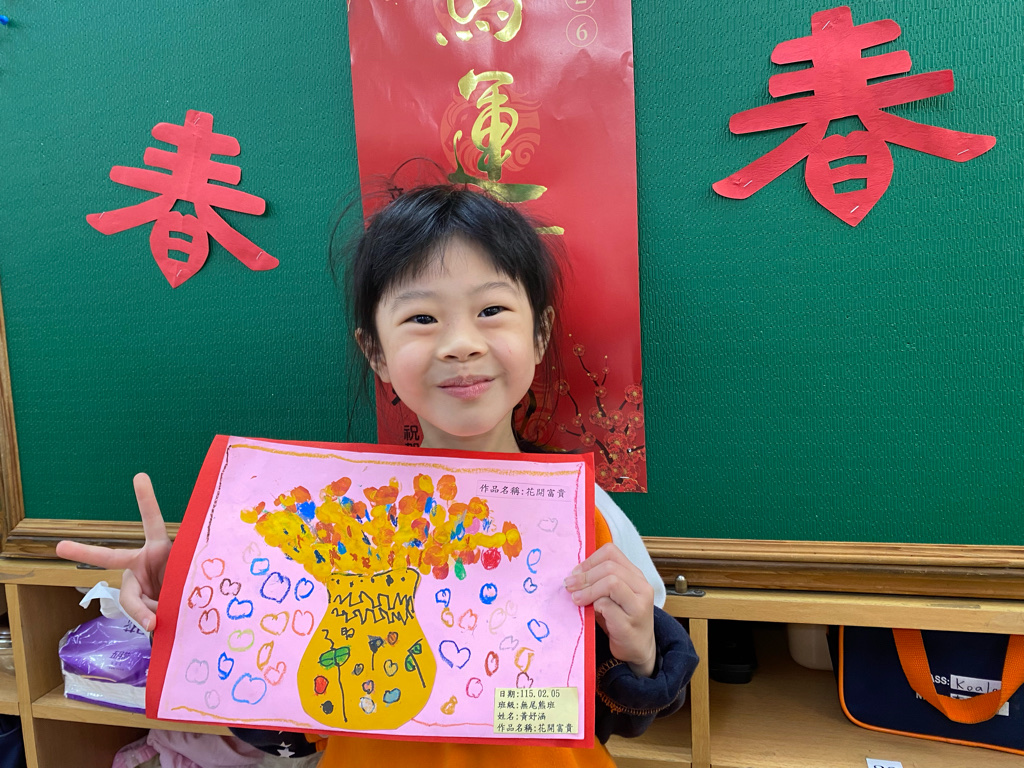 6
運
春
春
祝
作品名稱:花開富貴
日期:115.02.05
班級:無尾熊班
姓名:黃妤涵
作品名稱:花開富貴
Koala